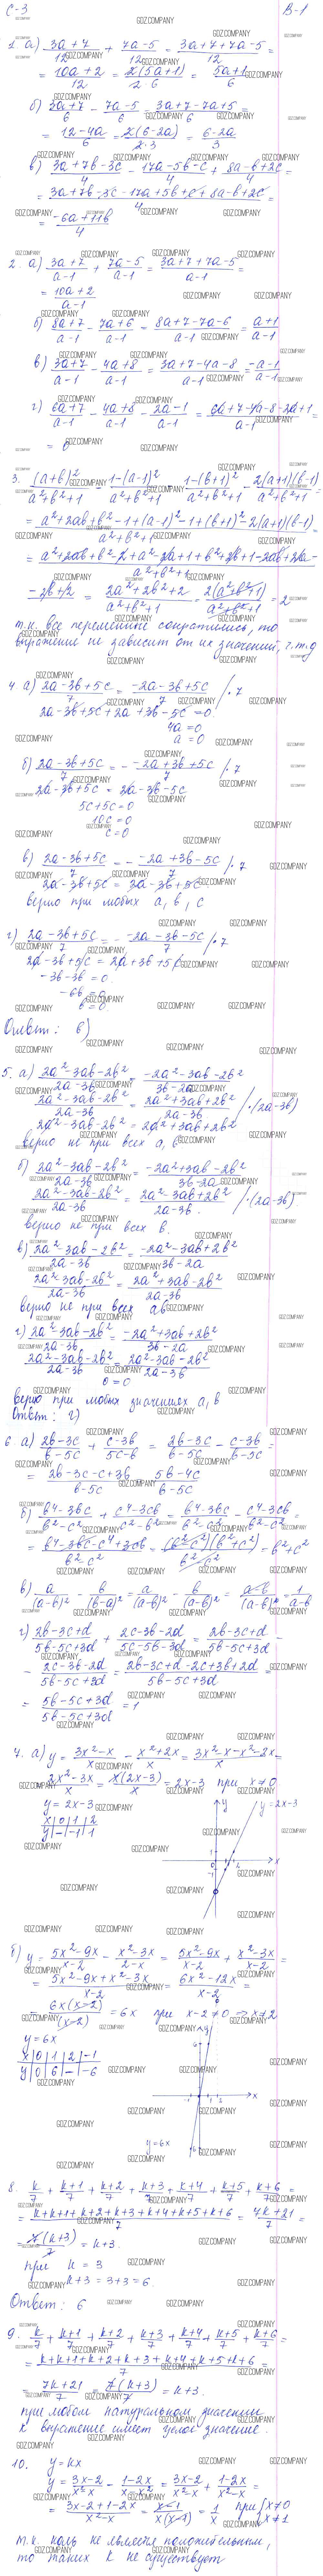 С-3
В-1
1. а) (3a+7)/12 + (7a-5)/12 = (3a+7+7a-5)/12 =
= (10a+2)/12 = 2(5a+1)/(2·6) = (5a+1)/6
б) (3a+7)/6 - (7a-5)/6 = (3a+7-7a+5)/6 =
= (12-4a)/6 = 2(6-2a)/(2·3) = (6-2a)/3
в) (3a+7b-3c)/4 - (17a-5b-c)/4 + (8a-b+2c)/4 =
= (3a+7b-3c-17a+5b+c+8a-b+2c)/4 =
= (-6a+11b)/4
2. а) (3a+7)/(a-1) + (7a-5)/(a-1) = (3a+7+7a-5)/(a-1) =
= (10a+2)/(a-1)
б) (8a+7)/(a-1) - (7a+6)/(a-1) = (8a+7-7a-6)/(a-1) = (a+1)/(a-1)
в) (3a+7)/(a-1) - (4a+8)/(a-1) = (3a+7-4a-8)/(a-1) = (-a-1)/(a-1)
г) (6a+7)/(a-1) - (4a+8)/(a-1) - (2a-1)/(a-1) = (6a+7-4a-8-2a+1)/(a-1) =
= 0
3. (a+b)²/(a²+b²+1) - (1-(a-1)²)/(a²+b²+1) - (1-(b+1)²)/(a²+b²+1) - 2(a+1)(b-1)/(a²+b²+1) =
= (a²+2ab+b²-1+(a-1)²-1+(b+1)²-2(a+1)(b-1))/(a²+b²+1) =
= (a²+2ab+b²-2+a²-2a+1+b²+2b+1-2ab+2a-
-2b+2)/(a²+b²+1) = (2a²+2b²+2)/(a²+b²+1) = 2(a²+b²+1)/(a²+b²+1) = 2
т.к. все переменные сократились, то
выражение не зависит от их значений, ч.т.д
4. а) (2a-3b+5c)/7 = (-2a-3b+5c)/7 /·7
2a-3b+5c+2a+3b-5c=0
4a=0
a=0
б) (2a-3b+5c)/7 = - (-2a+3b+5c)/7 /·7
2a-3b+5c = 2a-3b-5c
5c+5c=0
10c=0
c=0
в) (2a-3b+5c)/7 = - (-2a+3b-5c)/7 /·7
2a-3b+5c = 2a-3b+5c
верно при любых a, b, c
г) (2a-3b+5c)/7 = - (-2a-3b-5c)/7 /·7
2a-3b+5c = 2a+3b+5c
-3b-3b=0
-6b=0
b=0
Ответ: в)
5. а) (2a²-3ab-2b²)/(2a-3b) = (-2a²-3ab-2b²)/(3b-2a)
(2a²-3ab-2b²)/(2a-3b) = (2a²+3ab+2b²)/(2a-3b) /·(2a-3b)
2a²-3ab-2b² = 2a²+3ab+2b²
верно не при всех a, b
б) (2a²-3ab-2b²)/(2a-3b) = (-2a²+3ab-2b²)/(3b-2a)
(2a²-3ab-2b²)/(2a-3b) = (2a²-3ab+2b²)/(2a-3b) /·(2a-3b)
верно не при всех b.
в) (2a²-3ab-2b²)/(2a-3b) = (-2a²-3ab+2b²)/(3b-2a)
(2a²-3ab-2b²)/(2a-3b) = (2a²+3ab-2b²)/(2a-3b)
верно не при всех ab
г) (2a²-3ab-2b²)/(2a-3b) = (-2a²+3ab+2b²)/(3b-2a)
(2a²-3ab-2b²)/(2a-3b) = (2a²-3ab-2b²)/(2a-3b)
0=0
верно при любых значениях a, b
Ответ: г)
6. а) (2b-3c)/(b-5c) + (c-3b)/(5c-b) = (2b-3c)/(b-5c) - (c-3b)/(b-5c) =
= (2b-3c-c+3b)/(b-5c) = (5b-4c)/(b-5c)
б) (b⁴-3bc)/(b²-c²) + (c⁴-3cb)/(c²-b²) = (b⁴-3bc)/(b²-c²) - (c⁴-3cb)/(b²-c²) =
= (b⁴-3bc-c⁴+3cb)/(b²-c²) = (b²-c²)(b²+c²)/(b²-c²) = b²+c²
в) a/(a-b)² - b/(b-a)² = a/(a-b)² - b/(a-b)² = (a-b)/(a-b)² = 1/(a-b)
г) (2b-3c+d)/(5b-5c+3d) + (2c-3b-2d)/(5c-5b-3d) = (2b-3c+d)/(5b-5c+3d) -
- (2c-3b-2d)/(5b-5c+3d) = (2b-3c+d-2c+3b+2d)/(5b-5c+3d) =
= (5b-5c+3d)/(5b-5c+3d) = 1
7. а) y = (3x²-x)/x - (x²+2x)/x = (3x²-x-x²-2x)/x =
= (2x²-3x)/x = x(2x-3)/x = 2x-3 при x≠0
y=2x-3
x|0|1|2
y|-|-1|1
y
y=2x-3
x
б) y = (5x²-9x)/(x-2) - (x²-3x)/(2-x) = (5x²-9x)/(x-2) + (x²-3x)/(x-2) =
= (5x²-9x+x²-3x)/(x-2) = (6x²-12x)/(x-2) =
= 6x(x-2)/(x-2) = 6x при x-2≠0 => x≠2
y=6x
x|0|1|2|-1
y|0|6|-|-6
y
x
y=6x
8. k/7 + (k+1)/7 + (k+2)/7 + (k+3)/7 + (k+4)/7 + (k+5)/7 + (k+6)/7 =
= (k+k+1+k+2+k+3+k+4+k+5+k+6)/7 = (7k+21)/7 =
= 7(k+3)/7 = k+3.
при k=3
k+3=3+3=6.
Ответ: 6
9. k/7 + (k+1)/7 + (k+2)/7 + (k+3)/7 + (k+4)/7 + (k+5)/7 + (k+6)/7 =
= (k+k+1+k+2+k+3+k+4+k+5+k+6)/7 =
= (7k+21)/7 = 7(k+3)/7 = k+3.
при любом натуральном значении
k выражение имеет целое значение.
10. y=kx
y = (3x-2)/(x²-x) - (1-2x)/(x-x²) = (3x-2)/(x²-x) + (1-2x)/(x²-x) =
= (3x-2+1-2x)/(x²-x) = (x-1)/(x(x-1)) = 1/x при {x≠0 x≠1
т.к. ноль не является положительным,
то таких k не существует